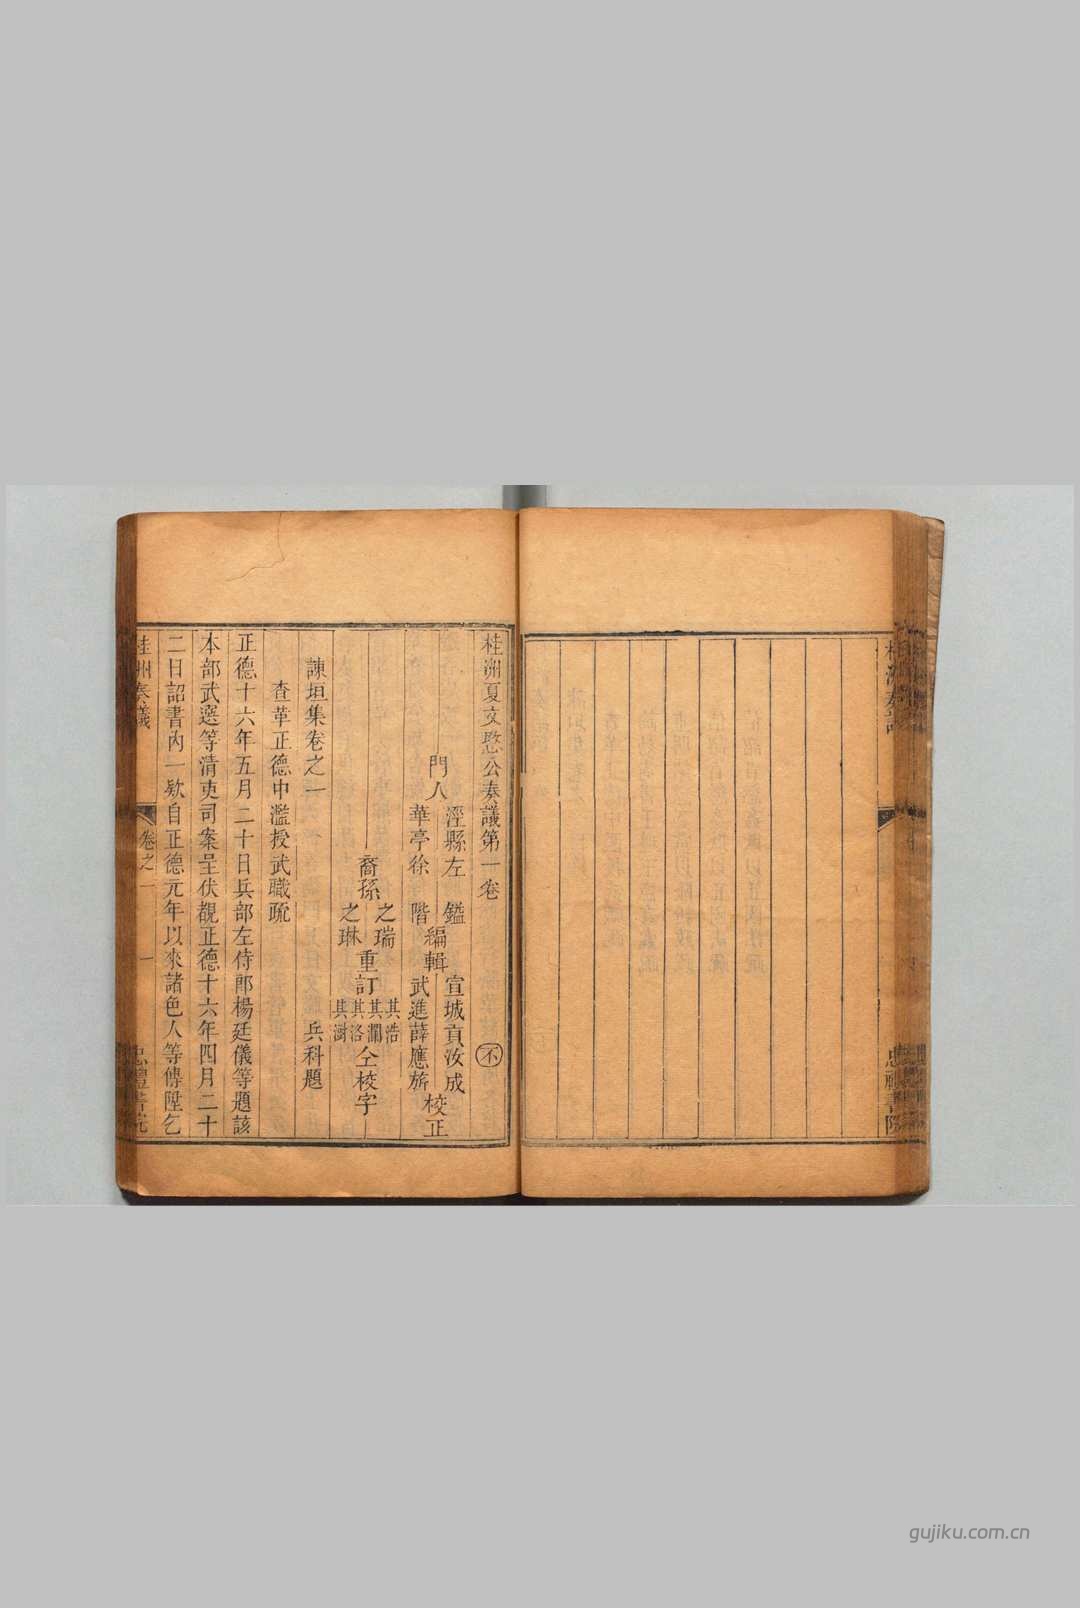 桂洲奏議
忠禮書院
桂洲夏文愍公奏議第一卷 不
門人
涇縣左鎰
華亭徐階
編輯
宣城貢汝成
武進薛應旂
校正
裔孫
之瑞
之琳
重訂
其浩
其瀾
其洛
其澍
仝校字
諫垣集卷之一 兵科題
查革正德中濫授武職疏
正德十六年五月二十日兵部左侍郎楊廷儀等題該
本部武選等清吏司案呈伏覩正德十六年四月二十
二日詔書內一欵自正德元年以來諸色人等傳陞乞
桂洲奏議
卷之一
一
忠禮書院
gujiku.com.cn